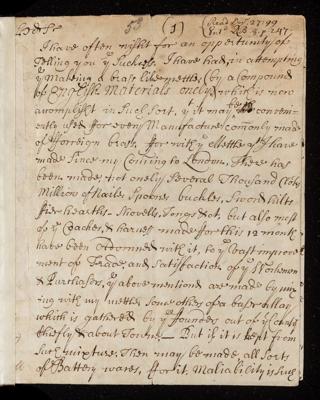 53 (1) Read Nov. 27. 99
I have often wisht for an oppertunity of
Telling you yᵉ Success, I have had, in attempting
yᵉ Makeing a brass like mettle, (by a Compound
of English Materials onely) which is now
accomplisht in Such sort, yᵗ it may be conveni-
ently used ffor every Manufacture comonly made
of yᵉ fforeign brass, ffor with yᵉ Mettle yᵗ I have
made Since my Coming to London, There has
been made not onely Several Thousand
Million of Nailes, Spoones buckles, Sword hilts
ffier hearths Shovells, Tongs &ct, but also most
of yᵉ Coaches, & harness made ffor this 12 month
have been adorned with it, to yᵉ Vast improve
ment of Trade, and Satisfaction of yᵉ Workmen
& Purchasors, yᵉ above mentiond are made by mix
ing with my mettle some others of a baser allay
which is gathered by yᵉ ffounders out of yᵉ
Chiefly & about Towne, — But if it is kept from
Such mixture, Then may be made, all Sorts
of Battery wares, ffor it, Maliability is Such